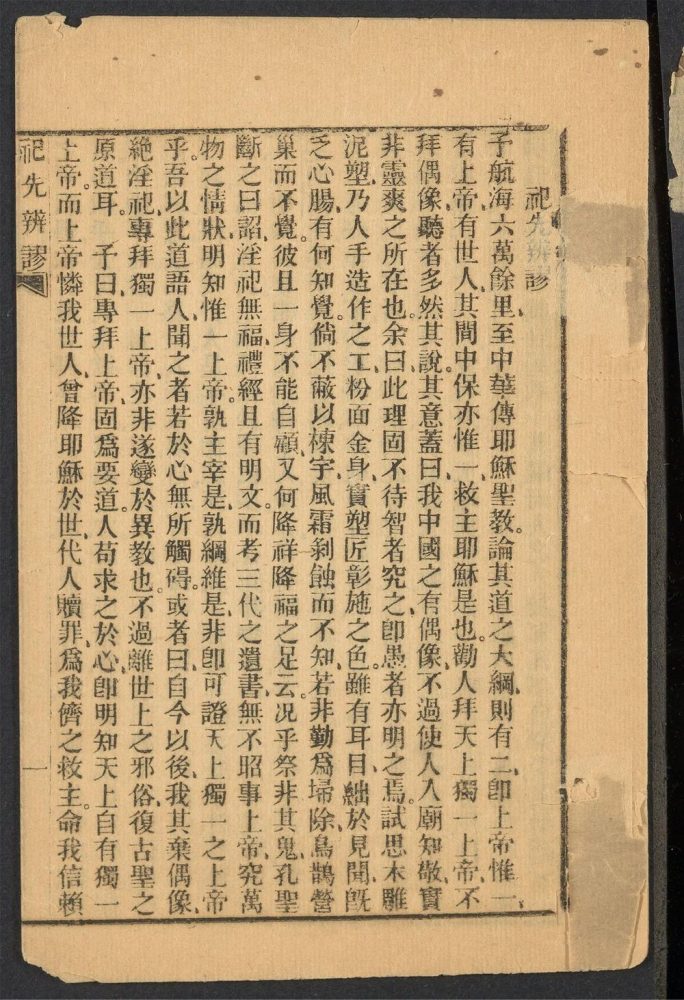 祀先辨謬
予航海六萬餘里、至中華傳耶穌聖教。論其道之大綱、則有二、卽上帝惟一、
有上帝、有世人、其間中保亦惟一、救主耶穌是也。勸人拜天上獨一上帝、不
拜偶像、聽者多然其說。其意蓋曰、我中國之有偶像、不過使人入廟知敬、實
非靈爽之所在也。余曰、此理固不待智者究之、卽愚者亦明之焉。試思木雕
泥塑、乃人手造作之工、粉面金身、實塑匠彰施之色。雖有耳目、絀於見聞、旣
乏心腸、有何知覺。倘不蔽以棟宇、風霜剝蝕而不知、若非勤爲埽除、鳥鵲營
巢而不覺。彼且一身不能自顧、又何降祥降福之足云。况乎祭非其鬼、孔聖
斷之曰諂、淫祀無福、禮經且有明文。而考三代之遺書、無不昭事上帝、究萬
物之情狀、明知惟一上帝。孰主宰是、孰綱維是、非卽可證天上獨一之上帝
乎。吾以此道語人、聞之者若於心無所觸碍。或者曰、自今以後、我其棄偶像、
絶淫祀、專拜獨一上帝、亦非遂變於異教也、不過離世上之邪俗、復古聖之
原道耳。予曰、專拜上帝、固爲要道。人苟求之於心、卽明知天上自有獨一
上帝、而上帝憐我世人、曾降耶穌於世、代人贖罪、爲我儕之救主。命我信賴
祀先辨謬
一